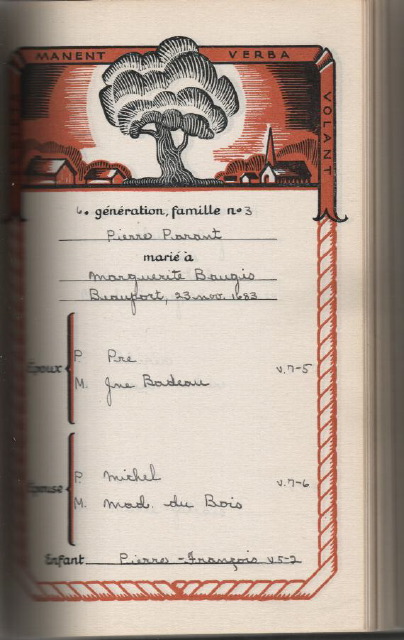 MANENT VERBA VOLANT
6e génération, famille no 3
Pierre Parant
marié à
Marguerite Baugis
Beauport, 23 nov. 1683
Epoux
P. Pre v.7-5
M. Jne Badeau
Epouse
P. Michel v.7-6
M. Mad. du Bois
Enfant Pierre-François v5-2